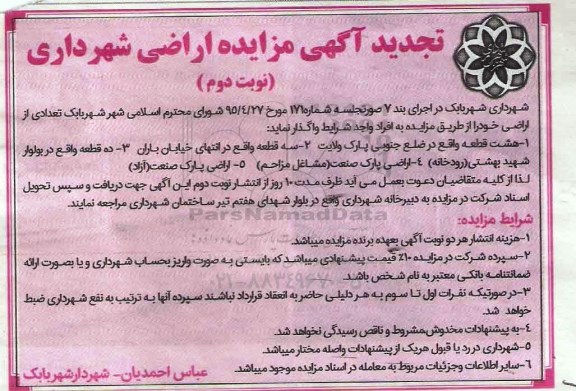 تجدید آگهی مزایده اراضی شهرداری
(نوبت دوم)
شهرداری شهربابک در اجرای بند ۷ صورتجلسه شماره۱۷۱ مورخ ۹۵/۴/۲۷ شورای محترم اسلامی شهر شهربابک تعدادی از
اراضی خودرا از طریق مزایده به افراد واجد شرایط واگذار نماید:
۱-هشت قطعه واقع در ضلع جنوبی پارک ولایت ۲-سه قطعه واقع در انتهای خیابان باران ۳- ده قطعه واقع در بولوار
شهید بهشتی(رودخانه) ۴-اراضی پارک صنعت(مشاغل مزاحم) ۵- اراضی پارک صنعت(آزاد)
لذا از کلیه متقاضیان دعوت بعمل می آید ظرف مدت ۱۰ روز از انتشار نوبت دوم این آگهی جهت دریافت و سپس تحویل
اسناد شرکت در مزایده به دبیرخانه شهرداری واقع در بلوار شهدای هفتم تیر ساختمان شهرداری مراجعه نمایند.
ParsNamadData
شرایط مزایده:
۱-هزینه انتشار هر دو نوبت آگهی بعهده برنده مزایده میباشد.
۲-سپرده شرکت در مزایده ۱۰٪ قیمت پیشنهادی میباشد که بایستی به صورت واریز بحساب شهرداری و یا بصورت ارائه
ضمانتنامه بانکی معتبر به نام شخص باشد.
۰۲۱-۸۸۳۴۹۶۷۰
۳-در صورتیکه نفرات اول تا سوم به هر دلیلی حاضر به انعقاد قرارداد نباشند سپرده آنها به ترتیب به نفع شهرداری ضبط
خواهد شد.
۴-به پیشنهادات مخدوش،مشروط و ناقص رسیدگی نخواهد شد.
۵-شهرداری در رد یا قبول هریک از پیشنهادات واصله مختار میباشد.
۶-سایر اطلاعات وجزئیات مربوط به معامله در اسناد مزایده موجود میباشد.
عباس احمدیان- شهردارشهربابک